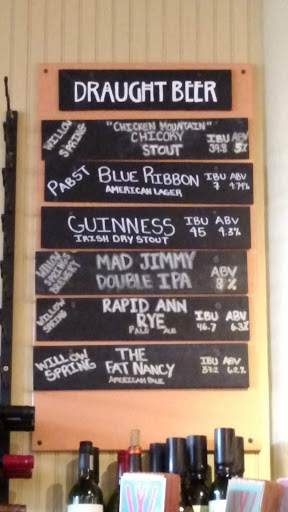 DRAUGHT BEER
WILLOW SPRING
"CHICKEN MOUNTAIN"
CHICORY
STOUT
IBU ABV
39.8 5%
PABST
BLUE RIBBON
AMERICAN LAGER
IBU ABV
7 4.74%
GUINNESS
IRISH DRY STOUT
IBU ABV
45 4.3%
MAD JIMMY
DOUBLE IPA
ABV
8%
WILLOW SPRING
RAPID ANN
RYE
PALE ALE
IBU ABV
46.7 6.3%
WILLOW SPRING
THE
FAT NANCY
AMERICAN PALE
IBU ABV
37.2 6.2%